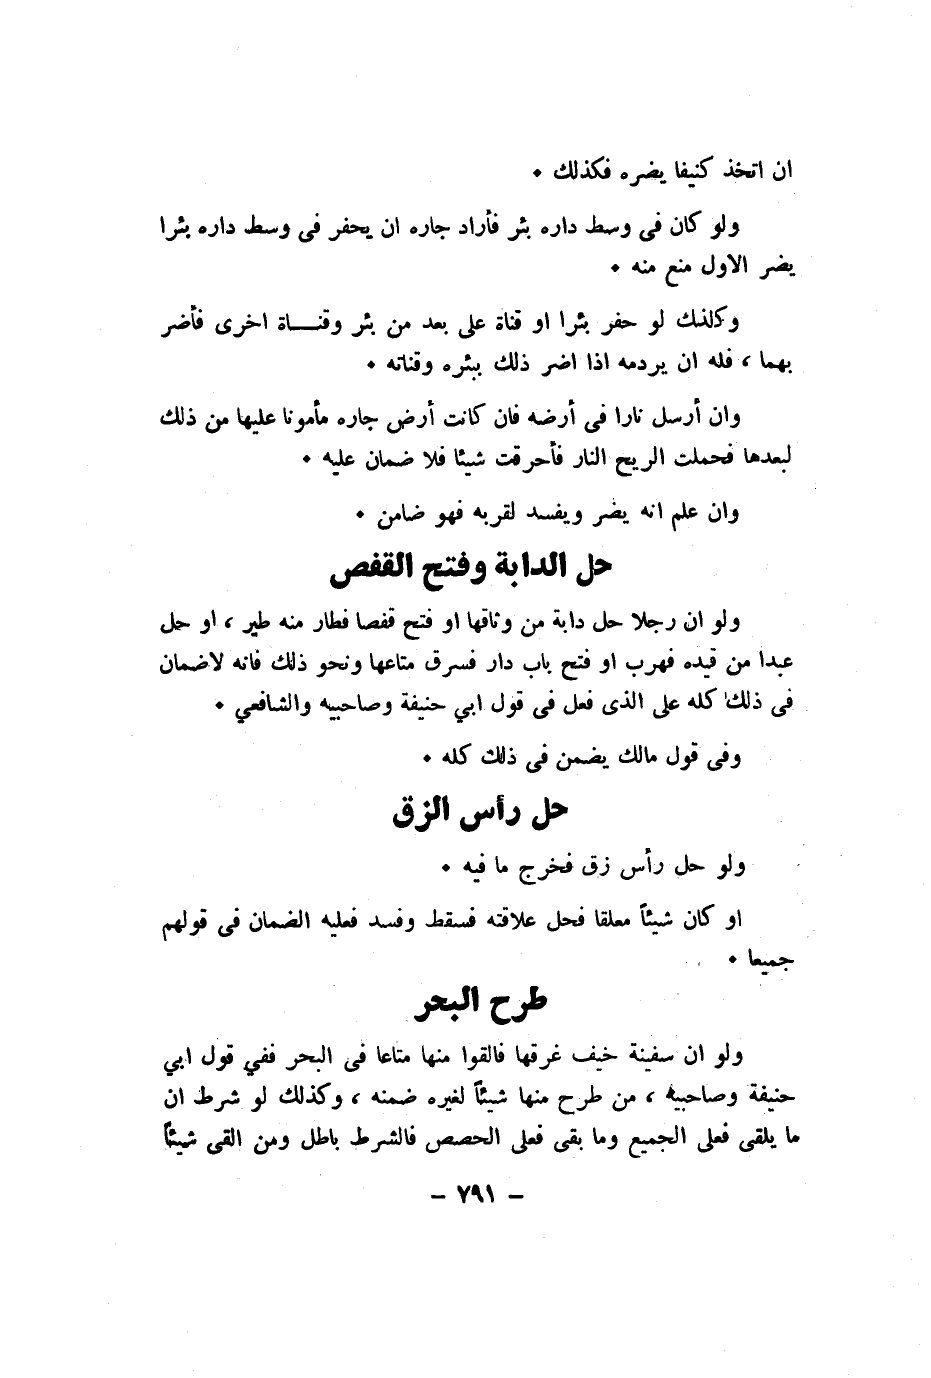 ان اتخذ كنيفا يضره فكذلك ٠
ولو كان في وسط داره بئر فأراد جاره ان يحفر في وسط داره بئرا
يضر الاول منع منه ٠
وكذلك لو حفر بئرا او قناة على بعد من بئر وقنـــاة اخرى فأضر
بهما ، فله ان يردمه اذا اضر ذلك ببئره وقناته ٠
وان أرسل نارا في أرضه فان كانت أرض جاره مأمونا عليها من ذلك
لبعدها فحملت الريح النار فأحرقت شيئا فلا ضمان عليه ٠
وان علم انه يضر ويفسد لقربه فهو ضامن ٠
حل الدابة وفتح القفص
ولو ان رجلا حل دابة من وثاقها او فتح قفصا فطار منه طير ، او حل
عبدا من قيده فهرب او فتح باب دار فسرق متاعها ونحو ذلك فانه لاضمان
في ذلك كله على الذى فعل في قول ابي حنيفة وصاحبيه والشافعي ٠
وفي قول مالك يضمن في ذلك كله ٠
حل رأس الزق
ولو حل رأس زق فخرج ما فيه ٠
او كان شيئاً معلقا فحل علاقته فسقط وفسد فعليه الضمان في قولهم
جميعا ٠
طرح البحر
ولو ان سفينة خيف غرقها فالقوا منها متاعا في البحر ففي قول ابي
حنيفة وصاحبيه ، من طرح منها شيئاً لغيره ضمنه ، وكذلك لو شرط ان
ما يلقى فعلى الجميع وما بقى فعلى الحصص فالشرط باطل ومن القى شيئاً
– ٧٩١ –